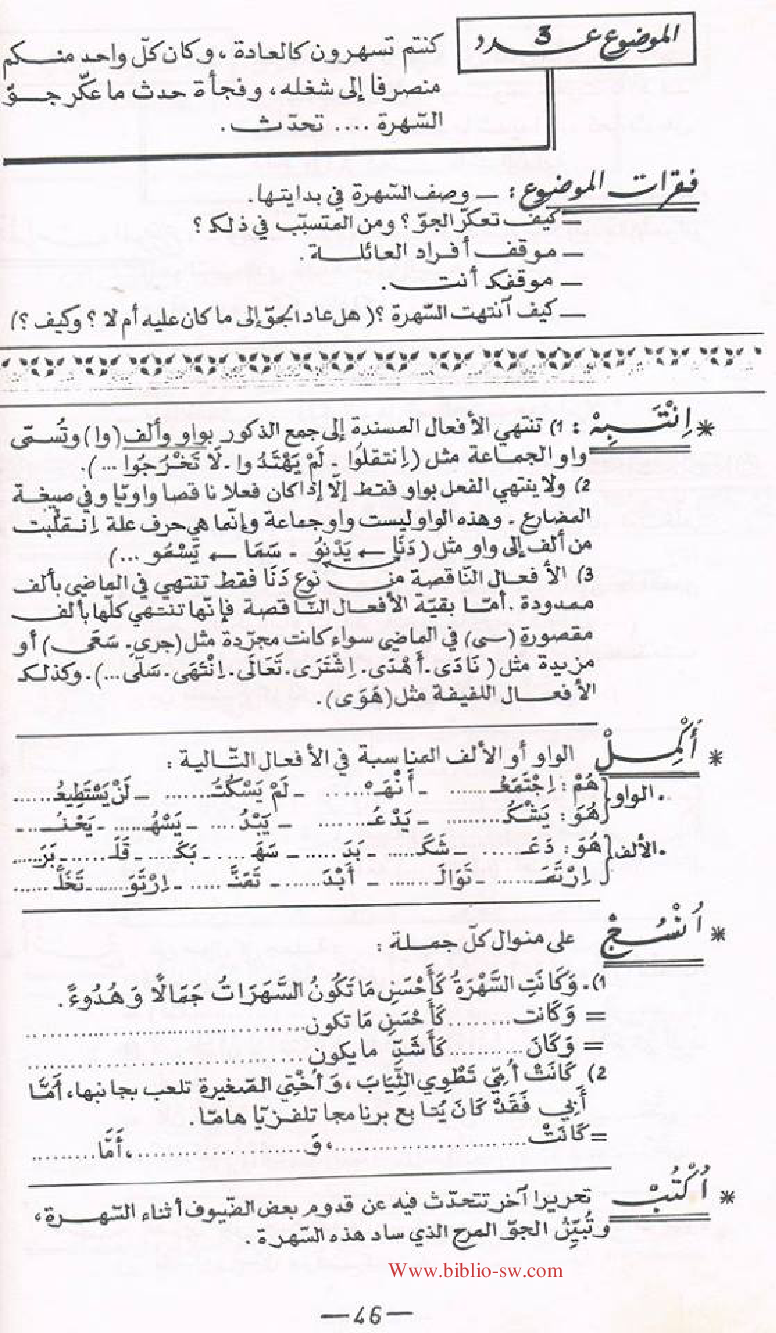 الموضوع عـدد 3
كنتم تسهرون كالعادة ، وكان كلّ واحد منـكم
منصرفا إلى شغله، وفجأة حدث ما عكّر جـوّ
السّهرة .... تحدّث.
فـقرات الموضـوع : ـ وصف السّهرة في بدايتها.
ـ كيف تعكّر الجوّ؟ ومن المتسبّب في ذلك ؟
ـ موقف أفراد العائلـة .
ـ موقفك أنت.
ـ كيف آنتهت السّهرة ؟( هل عاد الجوّ إلى ما كان عليه أم لا ؟ وكيف ؟)
* اِنْتَـبِـهْ : 1) تنتهي الأفعال المسندة إلى جمع الذكور بواو وألف (وا) وتُسمّى
واو الجمـاعة مثل (اِنتقلُوا . لَمْ يَهْتَدُوا . لَا تَخْرُجُوا ...).
2) ولا ينتهي الفعل بواو فقط إلّا إذا كان فعلا ناقصا واويّا وفي صيغة
المضارع . وهذه الواو ليست واو جماعة وإنّما هي حرف علة اِنـقلبت
من ألف إلى واو مثل (دَنَا ← يَدْنُو ـ سَمَا ← يَسْمُو ...)
3) الأفعـال النّاقصة من نوع دَنَا فقط تنتهي في الماضي بألف
ممدودة . أمّـا بقيّة الأفعـال النّـاقصة فإنّها تنتهي كلّها بألف
مقصورة (ـى) في الماضي سواء كانت مجرّدة مثل (جرى . سَعَى) أو
مزيدة مثل ( نَادَى . أَهْدَى . اِشْتَرَى . تَعَالَى . اِنْتَهَى . سَلَّى ...). وكذلك
الأفعـال اللفيفة مثل (هَوَى).
* أَكْمِـلْ الواو أو الألف المناسبة في الأفعال التّـالية :
. الواو { هُمْ : اِجْتَمَعُـ......... ـ أَنْهَـ ....... ـ لَمْ يَسْكُتُـ....... ـ لَنْ يَسْتَطِيعُـ.......
هُوَ : يَشْكُـ......... ـ يَدْعُـ ....... ـ يَبْدُ.... ـ يَسْهُـ...... ـ يَحْنُـ.... ـ
. الألف { هُوَ : دَعَـ ..... ـ شَكَـ ..... ـ بَدَ ..... ـ سَهَـ .... ـ بَكَـ .... ـ قَلَـ ...... ـ بَرَ.....
اِرْتَمَـ........ ـ تَوَالَـ....... ـ أَبْدَ...... ـ تَمَنَّـ..... ـ اِرْتَوَ....... ـ تَخَلَّـ......
* اُنْسُـجْ على منوال كلّ جمـلة :
1) . وَكَانَتِ السَّهْرَةُ كَأَحْسَنِ مَا تَكُونُ السَّهَرَاتُ جَمَالًا وَ هُدُوءً.
= وَكَانت .........كَأَحْسَنِ مَا تكون.............................
= وَكَانَ ..........كَأَشَدِّ ما يكون.............................
2) كَانَتْ أُمِّي تَطْوِي الثِّيَابَ ، وَ أُخْتِي الصّغيرة تلعب بجـانبها، أَمَّا
أَبِي فَقَدْ كَانَ يُتَـابع برنامجا تلفـزيّا هامّـا.
= كَانَتْ .........................، وَ .....................، أَمَّا ..........
* اُكْتُـبْ تحريرا آخر تتحدّث فيه عن قدوم بعض الضّيوف أثناء السّهـرة ،
وتُبَيِّنُ الجوّ المرح الذي ساد هذه السّهرة .
Www.biblio-sw.com
—46—